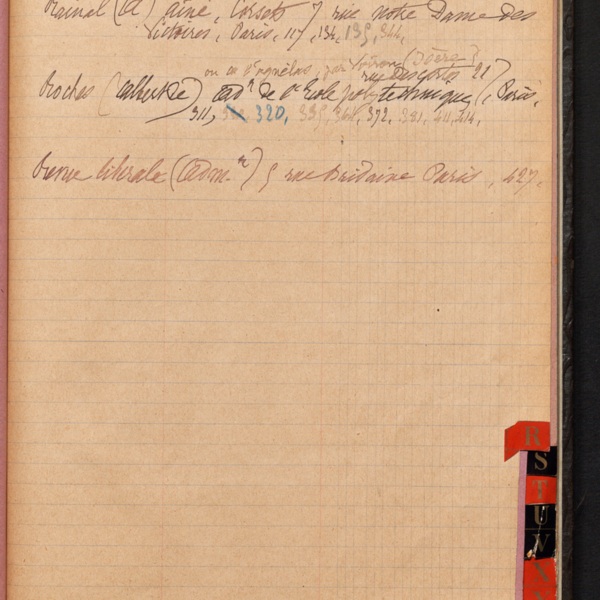 Rainal (L) aîné, Corsets 7 rue notre Dame des
Victoires, Paris, 117, 134, 135, 344,
ou ce d'..., par Voiron (Isère)
rue Descartes 21
Roches (albert de) adr de l'Ecole polytechnique (, Paris,
311, 320, 335, 368, 372, 381, 411, 414,
Revue libérale (Adm.on) 5 rue Bridaine Paris, 427.
R
S
T
U
V